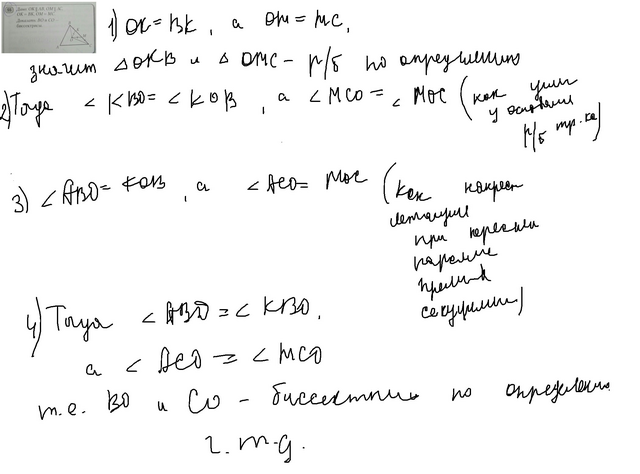 Дано: OK || AB, OM || AC
OK = BK, OM = MC
Доказать: BO и CO –
биссектрисы.
1) OK = BK, а OM = MC,
значит △ OKB и △ OMC – р/б по определению
2) Тогда ∠ KBO = ∠ KOB, а ∠ MCO = ∠ MOC (как углы
у основания
р/б тр-ка)
3) ∠ ABO = KOB, а ∠ ACO = MOC (как накрест
лежащие
при пересечен
паралле
прямых
секущими)
4) Тогда ∠ ABO = ∠ KBO,
а ∠ ACO = ∠ MCO
т.е. BO и CO – биссектрисы по определению
ч.т.д.